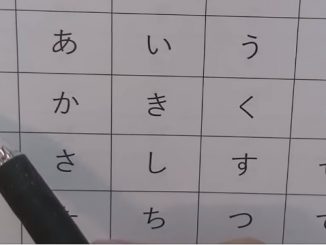 あ い う
か き く
さ し す
ち つ